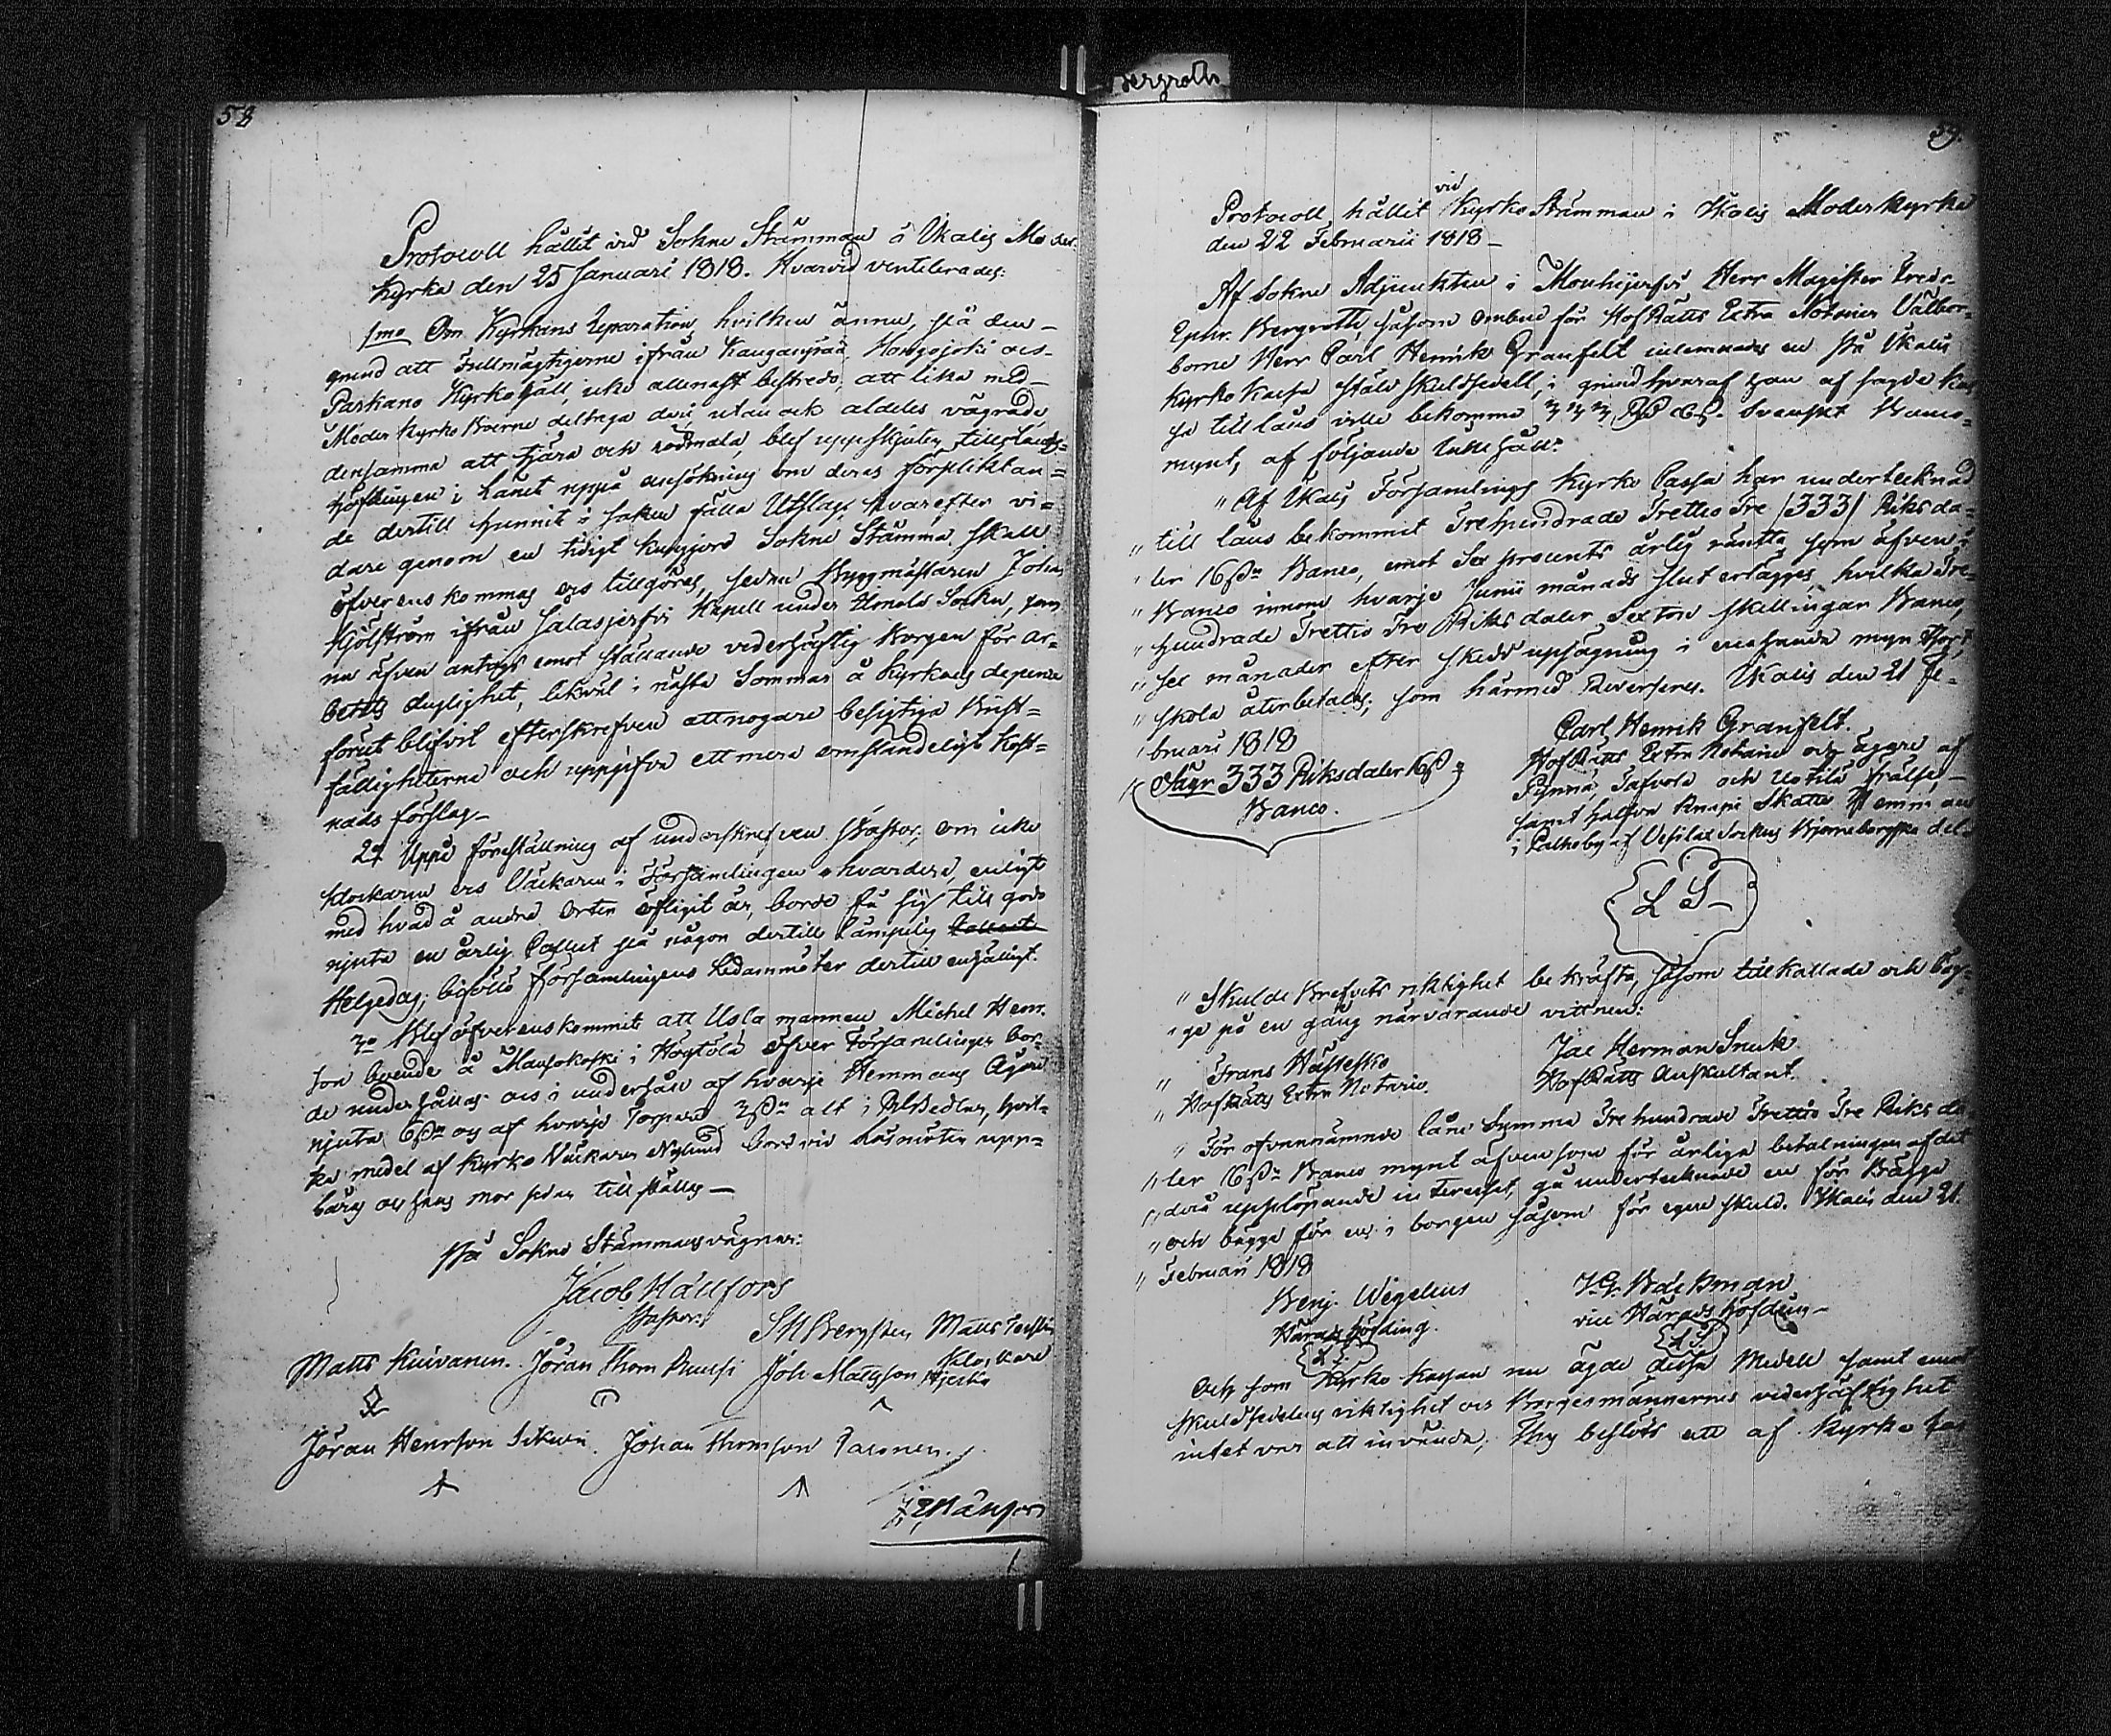 58
Protocoll hållit vid Sokne Stämman å Ikalis Moder
Kyrka den 25 Januari 1818. Hvarvid ventilerades:
1mo Om Kyrkans Reparation, hvilken ännu, på den
grund att Fullmägtigerne ifrån Kangaspää, Hongojoki ocs
Parkano Kyrkogäll, icke allenast bestredo, att lika med
Moder Kyrko Boerne deltaga deri, utan ock aldeles vägrade
densamma att tjära och rödmala, blef uppskjuten, tills Lands-
höfdingen i Länet uppå ansökning om deras förpliktan-
de dertill hunnit i saken fälla Utslag, hvarefter vi-
dare genom en tidigt kungjord Sokne Stämma skall
öfverenskommas ocs tillgöras, sedan Byggmästaren Johan
Kjölström ifrån Jalasjerfvi Kapell under Ilmola Sokn, som
nu äfven antogs emot ställande vederhäftig Borgen för ar-
betets duglighet, likväl i nästa Sommar å Kyrkans depens
förut blifvit efterskrefven att nogare besigtiga Brist-
fälligheterna och uppgifva ett mera omständeligt Kost-
nads förslag
2o Uppå föreställning af underskrefven Pastor, om icke
Klockaren ocs Väckaren i Församlingen hvardera, enligt
med hvad å andra Orter öfligit är, borde få sig till godo
njuta en årlig Collect på någon dertill lämpelig
Helgedag; biföllo församlingens Ledammöter dertill enhälligt.
3o Blef öfverenskommit att Usla mannen Michel Henr.
son boende å Mansokoski i Höytölä öfver Församlingen bor-
de underhållas ocs i underhåll af hvarje Hemmans Ägare
njuta 6 sk. og af hvarje Torpare 3 sk. alt i RSedlar, hvil-
ka medel af Kyrko Väckaren Nylund bord vid Läsmöten upp-
bäras ocs hans mor sedan tillställas
På Sokne Stämmans vägnar:
Jacob Hällfors
Pastor.
S M Bergsten Matts
Klockare
Matts Kuivanen. Jöran Thom Ruusi Joh Matsson
Jöran Henrson Sikuri. Johan Thomson Paronen.
59.
Bergroth
Protocoll hållit vid Kyrko Stämman i Ikalis Moderkyrka
den 22 Februarii 1818
Af Sokne Adjunkten i Mouhijerfvi Herr Magister Fredr.
Ephr. Bergroth, såsom Ombud för HofRätts Extra Notarien Välbor-
borne Herr Carl Henrik Granfelt inlemnades en på Ikalis
Kyrko Kassa stäld skuldsedell, i grund hvaraf han af sagde Kas
sa till låns ville bekomma 333 Rd 16 s. Svenskt Banco-
mynt, af följande Innehåll:
" Af Ikalis Församlings Kyrko Cassa har undertecknad
" till låns bekommit Trehundrade Trettio Tre /333/ Riksda-
" ler 16 sk. Banco, emot Sex procents årlig ränta, som äfven i
" Banco innom hvarje Junii månads slut erlägges, hvilka Tre-
" hundrade Trettio Tre Riksdaler Sexton Skillingar Banco,
" sex månader efter skedd upsägning i enahanda mynt
" skola återbetalas; som härmed Reverseras. Ikalis den 21 Fe-
" bruari 1818
Carl Henrik Granfelt.
HofRätts Extra Notarie och ägare af
Pynnä, Jafvola och Uotila Frälse,
samt halfva Knapi Skatte Hemman
i Palhoby af Vesilax Sockns Björneborgska del.
Säger 333 Riksdaler 16 sk.
Banco.
L S
" Skulde Brefvets riktighet bekräfta, såsom tillkallade och bäg-
" ge på en gång närvarande vittnen:
" Frans Hästesko
" HofRätts Extra Notarie.
Jac Herman Snuk
HofRätts Auskultant.
" För ofvannämnde låne Summa Trehundrade Trettio Tre Riksda
" ler 16 sk. Banco mynt äfvensom för årliga betalningen af det
" derå upplöpande interesset, gå undertecknade en för Bägge
" och bägge för en i borgen såsom för egen skuld. Ikalis den 21.
" Februari 1818
Benj. Wegelius
Härads höfding.
L S
J. G. Bäckman
vice Härads höfding
L S
Och som Kyrko Kassan nu ägde dessa Medell samt emot
Skuldsedelns riktighet ocs Borgesmännernes vederhäftighet
intet var att invända; Thy beslöts att af Kyrko Kas